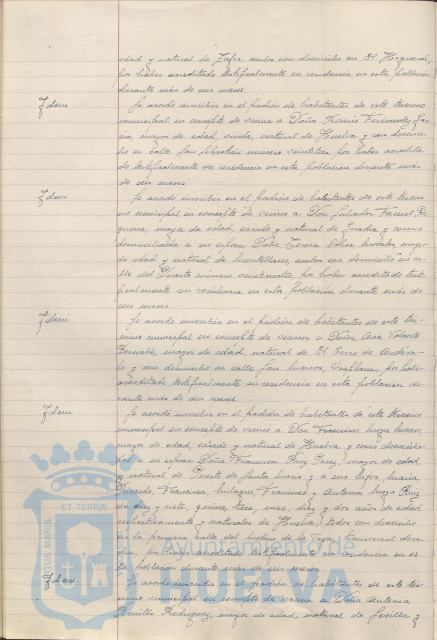 edad y natural de Zafra, ambos con domicilio en El Higueral,
por haber acreditado testificalmente su residencia en esta población
durante más de seis meses.
Idem Se acordó inscribir en el padrón de habitantes de este término
municipal en concepto de vecina a Doña Rosario Fernández
mayor de edad, viuda, natural de Huelva y con domici-
lio en calle San Sebastián número veintitrés por haber acredita-
do testificalmente su residencia en esta población durante más
de seis meses.
Idem Se acordó inscribir en el padrón de habitantes de este térmi-
no municipal en concepto de vecino a Don Salvador
mayor de edad, casado y natural de y como
domiciliada a su esposa Doña Teresa mayor
de edad y natural de ambos con domicilio en ca-
lle del Puerto número por haber acreditado testi-
ficalmente su residencia en esta población durante más de
seis meses.
Idem Se acordó inscribir en el padrón de habitantes de este tér-
mino municipal en concepto de vecino a Doña
mayor de edad, natural de El Cerro de Andéva-
lo y con domicilio en calle San Marcos, por haber
acreditado testificalmente su residencia en esta población du-
rante más de seis meses.
Idem Se acordó inscribir en el padrón de habitantes de este término
municipal en concepto de vecino a Don Francisco
mayor de edad, casado y natural de Huelva, y como domicilia-
dos a su esposa Doña Francisca Ruiz Pérez, mayor de edad
y natural de Puerto de Santa María y a sus hijos, María,
Francisca, Milagros, Francisco y Antonia Ruiz
de diez y siete, quince, trece, once, diez y dos años de edad
respectivamente y naturales de Huelva, todos con domicilio
en la primera calle del Molino de la Vega, transversal dere-
cha, por haber acreditado testificalmente su residencia en es-
ta población durante más de seis meses.
Idem Se acordó inscribir en el padrón de habitantes de este tér-
mino municipal en concepto de vecina a Doña Antonia
Benítez Rodríguez, mayor de edad, natural de Sevilla y
ET TERRAE
PORTUS MARIS
Ayuntamiento de
HUELVA